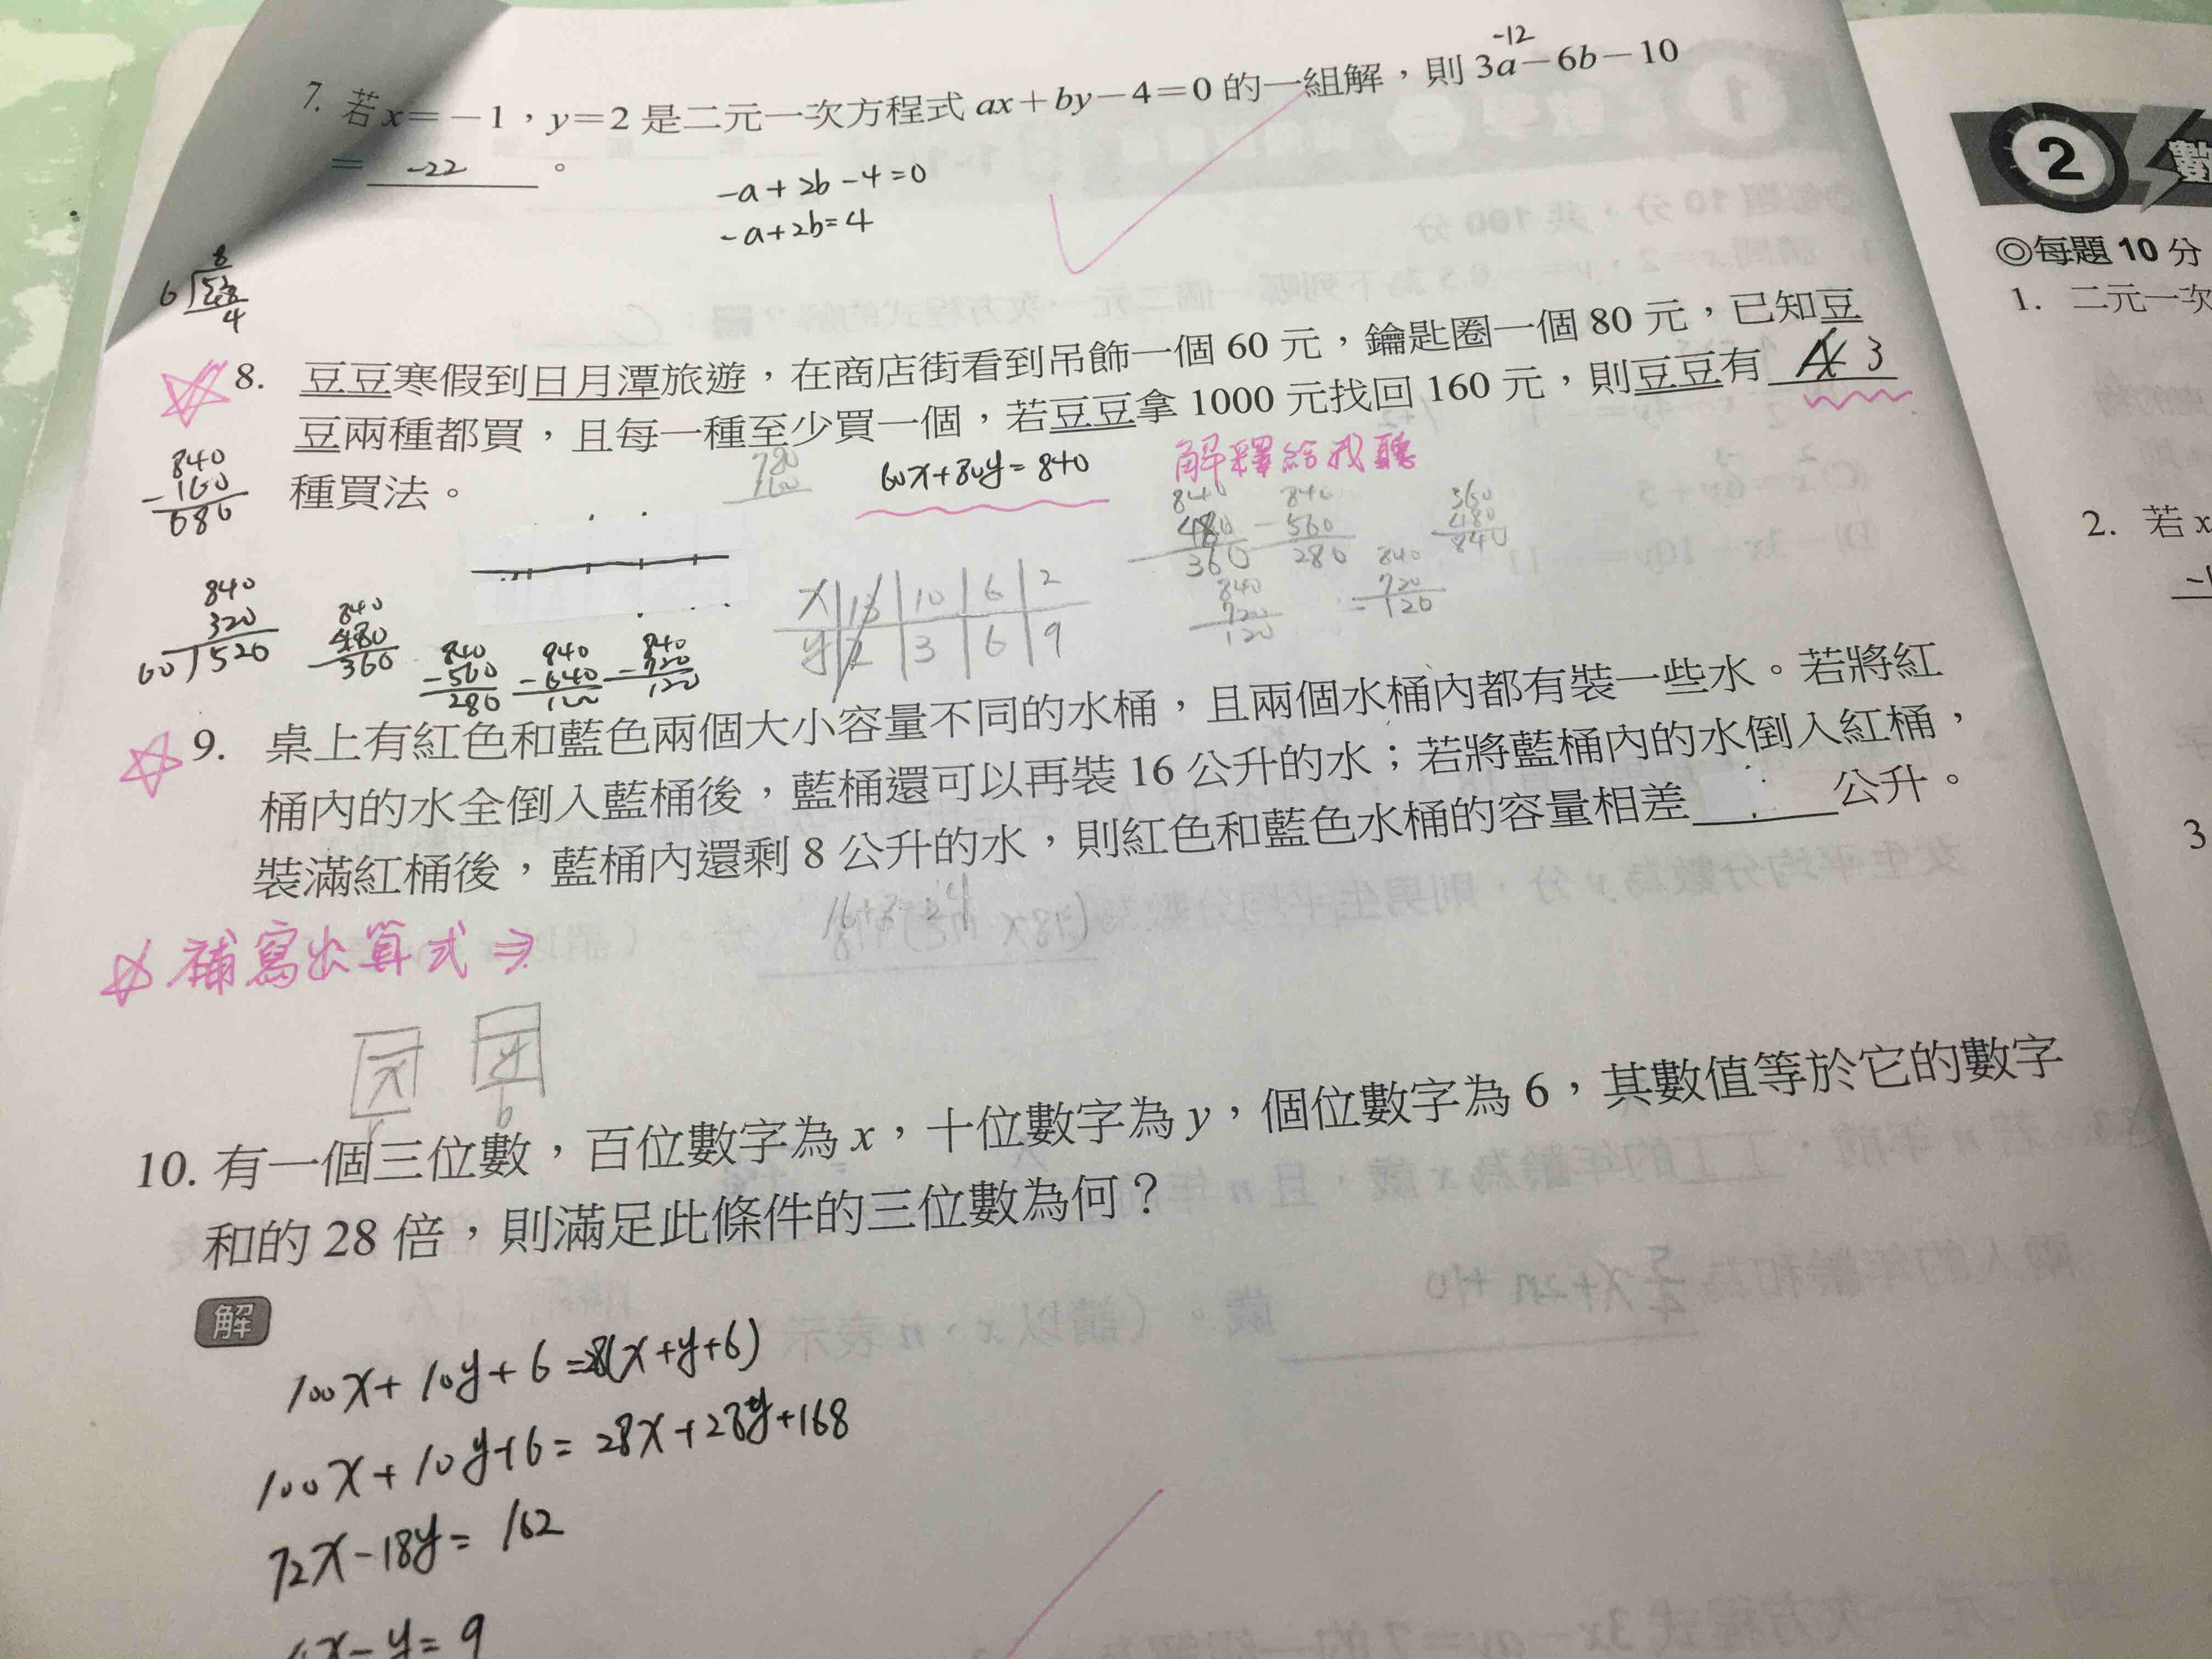 -12
7. 若x=-1，y=2是二元一次方程式ax+by-4=0的一組解，則3a-6b-10
= -22 。
-a+2b-4=0
-a+2b=4
8. 豆豆寒假到日月潭旅遊，在商店街看到吊飾一個60元，鑰匙圈一個80元，已知豆
豆兩種都買，且每一種至少買一個，若豆豆拿1000元找回160元，則豆豆有 3
種買法。
60x+80y=840
解釋給我聽
840
-160
680
840
320
60)520
840
480
360
840
-560
280
840
-640
840
-720
120
x 10 6 2
y 2 3 6 9
840
480
360
840
-560
280
360
480
840
840
720
120
840
-720
120
9. 桌上有紅色和藍色兩個大小容量不同的水桶，且兩個水桶內都有裝一些水。若將紅
桶內的水全倒入藍桶後，藍桶還可以再裝16公升的水；若將藍桶內的水倒入紅桶，
裝滿紅桶後，藍桶內還剩8公升的水，則紅色和藍色水桶的容量相差 公升。
補寫出算式⇒
x y
r b
10. 有一個三位數，百位數字為x，十位數字為y，個位數字為6，其數值等於它的數字
和的28倍，則滿足此條件的三位數為何？
解
100x+10y+6=28(x+y+6)
100x+10y+6=28x+28y+168
72x-18y=162
4x-y=9
2 數
◎每題10分
1. 二元一次
2. 若x
3